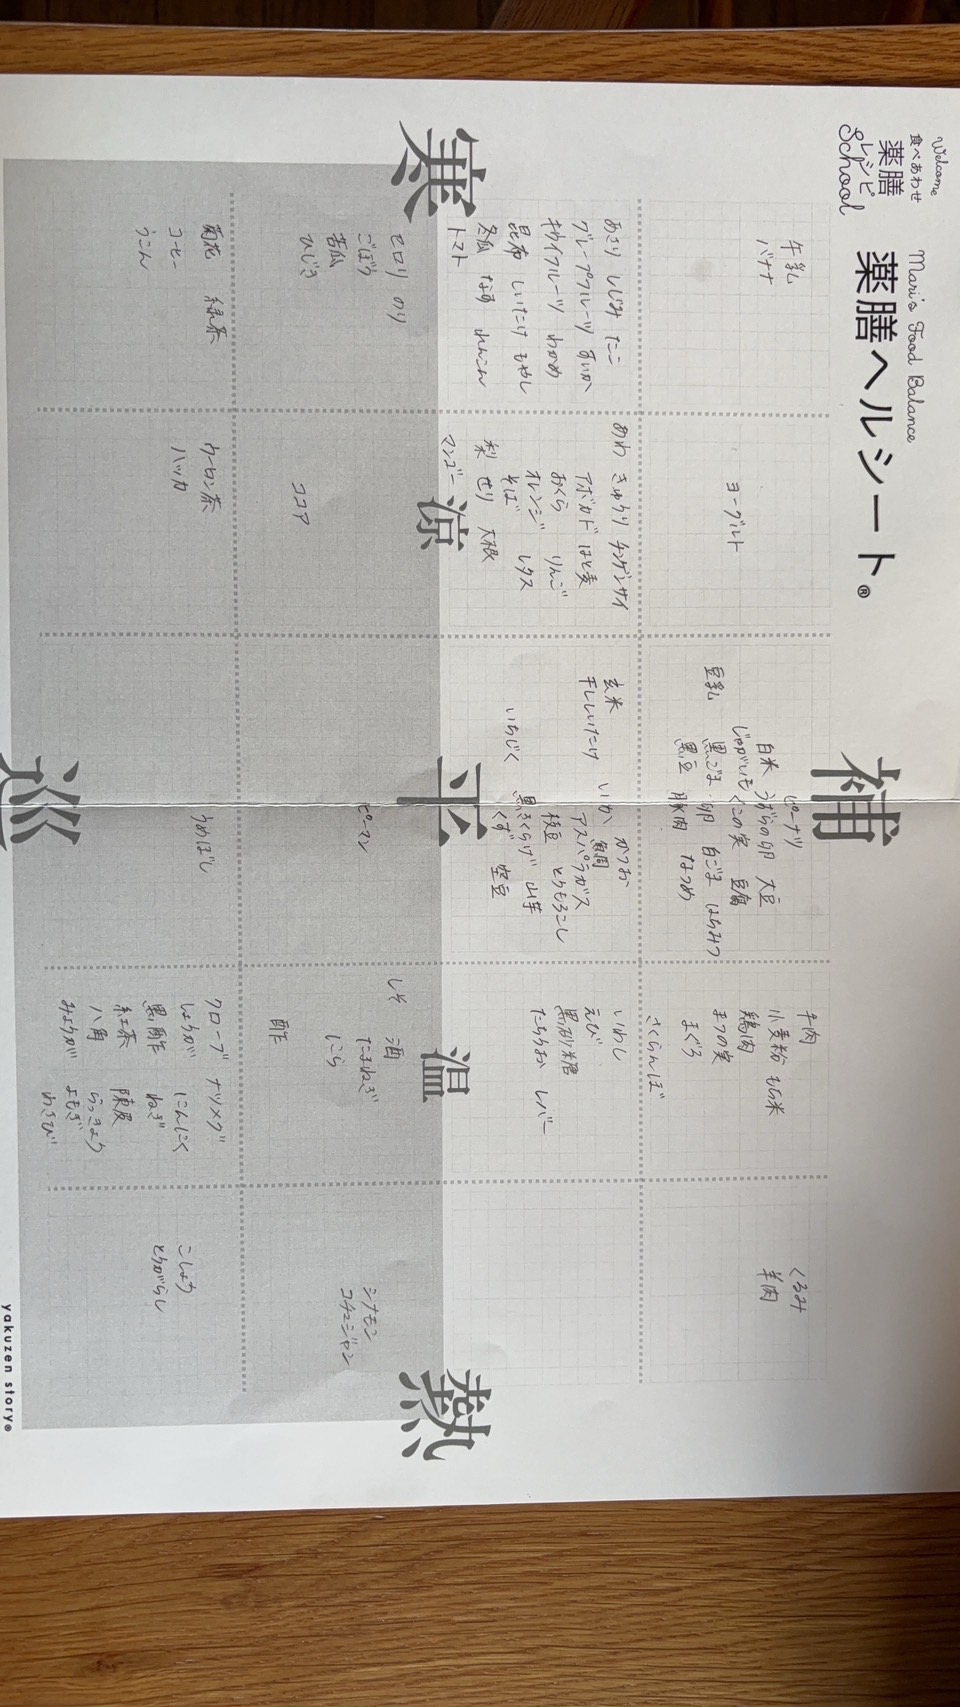 Welcome
食べあわせ
薬膳
レシピ
School
Mari's Food Balance
薬膳ヘルシート®
補
寒
涼
平
温
熱
巡
牛乳
バナナ
ヨーグルト
豆乳
ピーナツ
白米 うずらの卵 大豆
じゃがいも くこの実 豆腐
黒ごま 卵 白ごま はちみつ
黒豆 豚肉 なつめ
牛肉
小麦粉 もち米
鶏肉
まつの実
まぐろ
さくらんぼ
くるみ
羊肉
あさり しじみ たこ
グレープフルーツ すいか
キウイフルーツ わかめ
昆布 しいたけ もやし
冬瓜 なす れんこん
トマト
あわ きゅうり チンゲンサイ
アボカド はと麦
おくら りんご
オレンジ
そば レタス
梨 せり 大根
マンゴー
玄米
干ししいたけ
いちじく
いか かつお
アスパラガス
枝豆 とうもろこし
黒きくらげ 山芋
くず 空豆
いわし
えび
黒砂糖
たちうお レバー
セロリ のり
ごぼう
苦瓜
ひじき
ココア
ピーマン
しそ 酒
たまねぎ
にら
酢
シナモン
コチュジャン
菊花 緑茶
コーヒー
うこん
ウーロン茶
ハッカ
うめぼし
クローブ ナツメグ
しょうが にんにく
黒酢 ねぎ
紅茶 陳皮
八角 らっきょう
みょうが よもぎ
わさび
こしょう
とうがらし
yakuzen story®